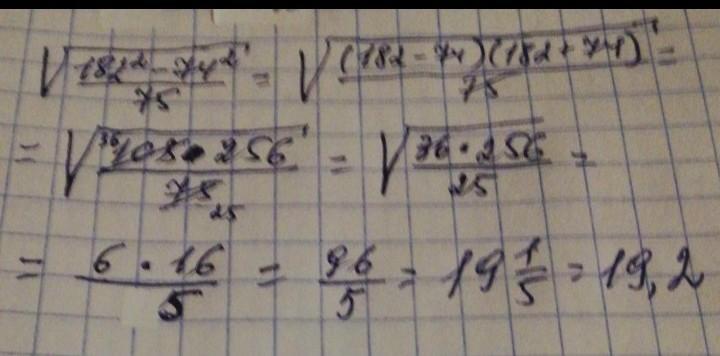 √((182² − 74²)/75) = √(((182 − 74)(182 + 74))/75) =
= √((³⁶108 · 256)/(75 ₂₅)) = √((36 · 256)/25) =
= (6 · 16)/5 = 96/5 = 19 1/5 = 19,2